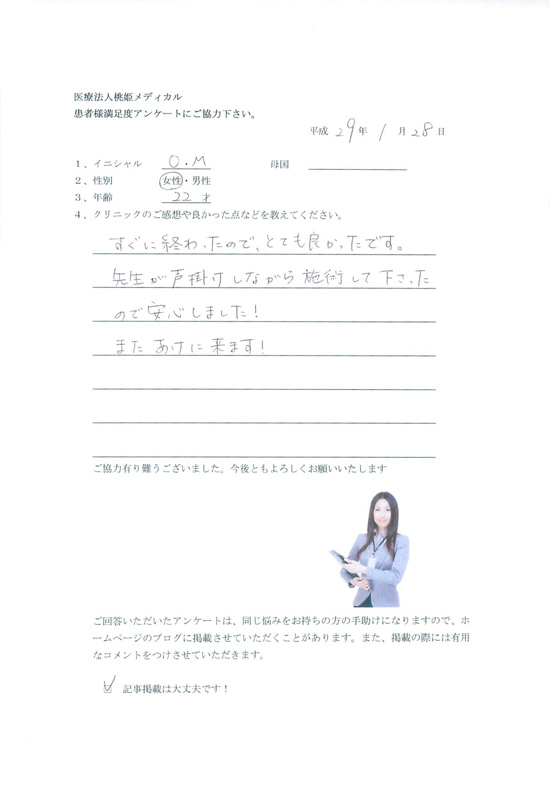 医療法人桃姫メディカル
患者様満足度アンケートにご協力下さい。
平成 29 年 1 月 28 日
1、イニシャル O.M 母国
2、性別 女性・男性
3、年齢 22 才
4、クリニックのご感想や良かった点などを教えてください。
すぐに終わったので、とても良かったです。
先生が声掛けしながら施術して下さった
ので安心しました！
また あけに来ます！
ご協力有り難うございました。今後ともよろしくお願いいたします
ご回答いただいたアンケートは、同じ悩みをお持ちの方の手助けになりますので、ホ
ームページのブログに掲載させていただくことがあります。また、掲載の際には有用
なコメントをつけさせていただきます。
☑ 記事掲載は大丈夫です！